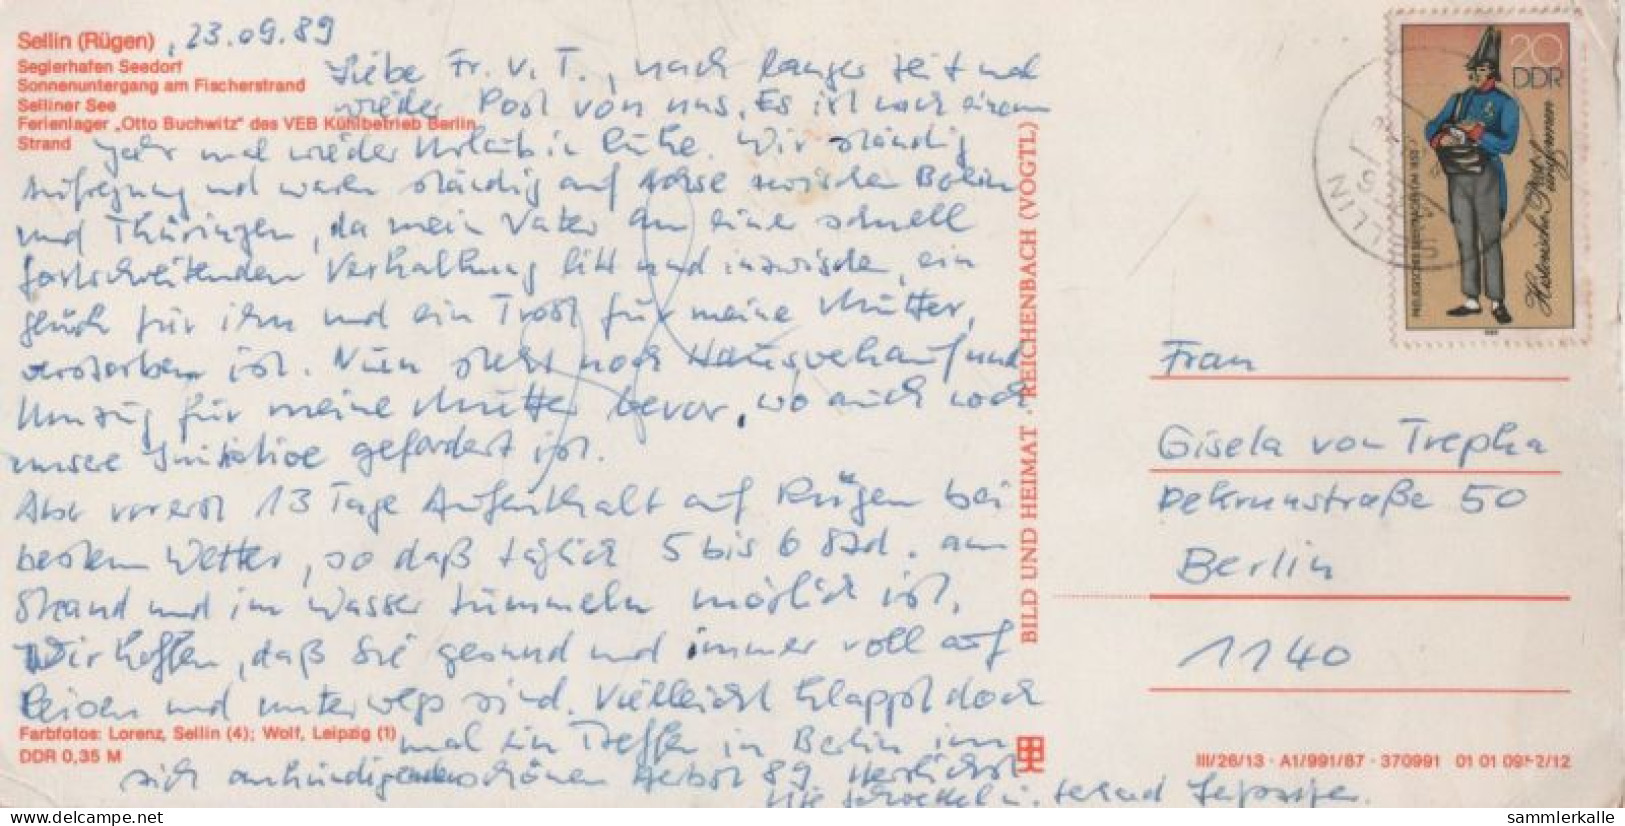 Sellin (Rügen) , 23.09.89
Seglerhafen Seedorf
Sonnenuntergang am Fischerstrand
Selliner See
Ferienlager „Otto Buchwitz" des VEB Kühlbetrieb Berlin
Strand
Liebe Fr. v. T., nach langer Zeit mal
wieder Post von uns. Es ist nach einem
Jahr mal wieder Urlaub in Wir ständig
Aufregung und waren ständig auf Achse zwischen Berlin
und Thüringen, da mein Vater an eine schnell
fortschreitenden Verkalkung litt und inzwischen, ein
Glück für ihn und ein Trost für meine Mutter,
verstorben ist. Nun steht noch Hausverkauf und
Umzug für meine Mutter bevor, wo auch noch
unsere Initiative gefordert ist.
Aber vorerst 13 Tage Aufenthalt auf Rügen bei
bestem Wetter, so daß täglich 5 bis 6 Std. am
Strand und im Wasser tummeln möglich ist.
Wir hoffen, daß Sie gesund und immer voll auf
Reisen und unterwegs sind. Vielleicht klappt doch
mal ein Treffen in Berlin im
sich ankündigenden schönen Herbst 89. Herzlichst
Farbfotos: Lorenz, Sellin (4); Wolf, Leipzig (1)
DDR 0,35 M
BILD UND HEIMAT · REICHENBACH (VOGTL)
20
DDR
Historische Postuniformen
SELLIN
Frau
Gisela von Trepka
Dekrunstraße 50
Berlin
1140
III/26/13 · A1/991/87 · 370991 01 01 0952/12
sammlerkalle